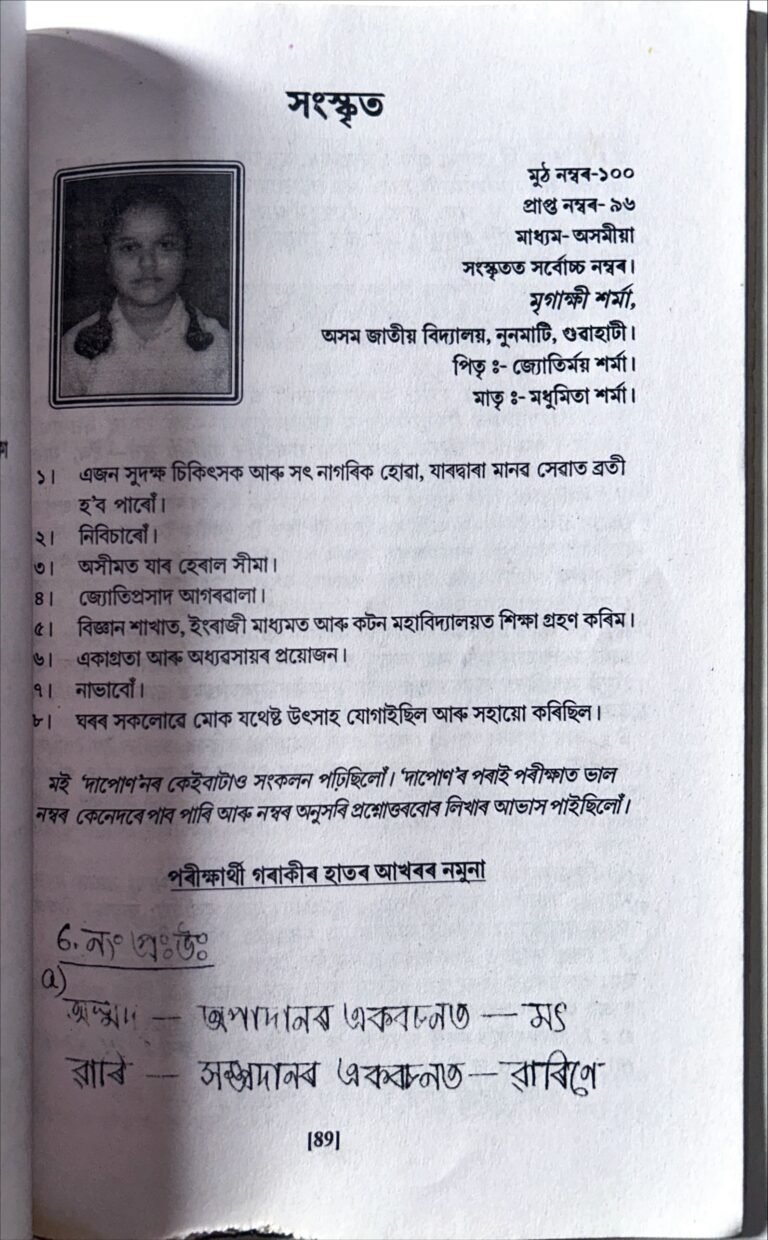 সংস্কৃত
মুঠ নম্বৰ-১০০
প্ৰাপ্ত নম্বৰ- ৯৬
মাধ্যম- অসমীয়া
সংস্কৃতত সৰ্বোচ্চ নম্বৰ।
মৃগাক্ষী শৰ্মা,
অসম জাতীয় বিদ্যালয়, নূনমাটি, গুৱাহাটী।
পিতৃ ঃ- জ্যোতিৰ্ময় শৰ্মা।
মাতৃ ঃ- মধুমিতা শৰ্মা।
১। এজন সুদক্ষ চিকিৎসক আৰু সৎ নাগৰিক হোৱা, যাৰদ্বাৰা মানৱ সেৱাত ব্ৰতী
হ'ব পাৰোঁ।
২। নিবিচাৰোঁ।
৩। অসীমত যাৰ হেৰাল সীমা।
৪। জ্যোতিপ্ৰসাদ আগৰৱালা।
৫। বিজ্ঞান শাখাত, ইংৰাজী মাধ্যমত আৰু কটন মহাবিদ্যালয়ত শিক্ষা গ্ৰহণ কৰিম।
৬। একাগ্ৰতা আৰু অধ্যৱসায়ৰ প্ৰয়োজন।
৭। নাভাবোঁ।
৮। ঘৰৰ সকলোৱে মোক যথেষ্ট উৎসাহ যোগাইছিল আৰু সহায়ো কৰিছিল।
মই 'দাপোণ'নৰ কেইবাটাও সংকলন পঢ়িছিলোঁ। 'দাপোণ'ৰ পৰাই পৰীক্ষাত ভাল
নম্বৰ কেনেদৰে পাব পাৰি আৰু নম্বৰ অনুসৰি প্ৰশ্নোত্তৰবোৰ লিখাৰ আভাস পাইছিলোঁ।
পৰীক্ষাৰ্থী গৰাকীৰ হাতৰ আখৰৰ নমুনা
6. নং প্ৰঃউঃ
a)
অস্মদ — অপাদানৰ একবচনত — মৎ
ৱাৰি — সম্প্ৰদানৰ একবচনত — ৱাৰিণে
[89]